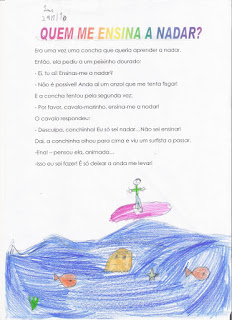 QUEM ME ENSINA A NADAR?
Era uma vez uma concha que queria aprender a nadar.
Então, ela pediu a um peixinho dourado:
- Ei, tu aí! Ensinas-me a nadar?
- Não é possível! Anda aí um anzol que me tenta fisgar!
E a concha tentou pela segunda vez:
- Por favor, cavalo-marinho, ensina-me a nadar!
O cavalo respondeu:
- Desculpa, conchinha! Eu só sei nadar...Não sei ensinar!
Daí, a conchinha olhou para cima e viu um surfista a passar.
-Ena! – pensou ela, animada...
-Isso eu sei fazer! É só deixar a onda me levar!